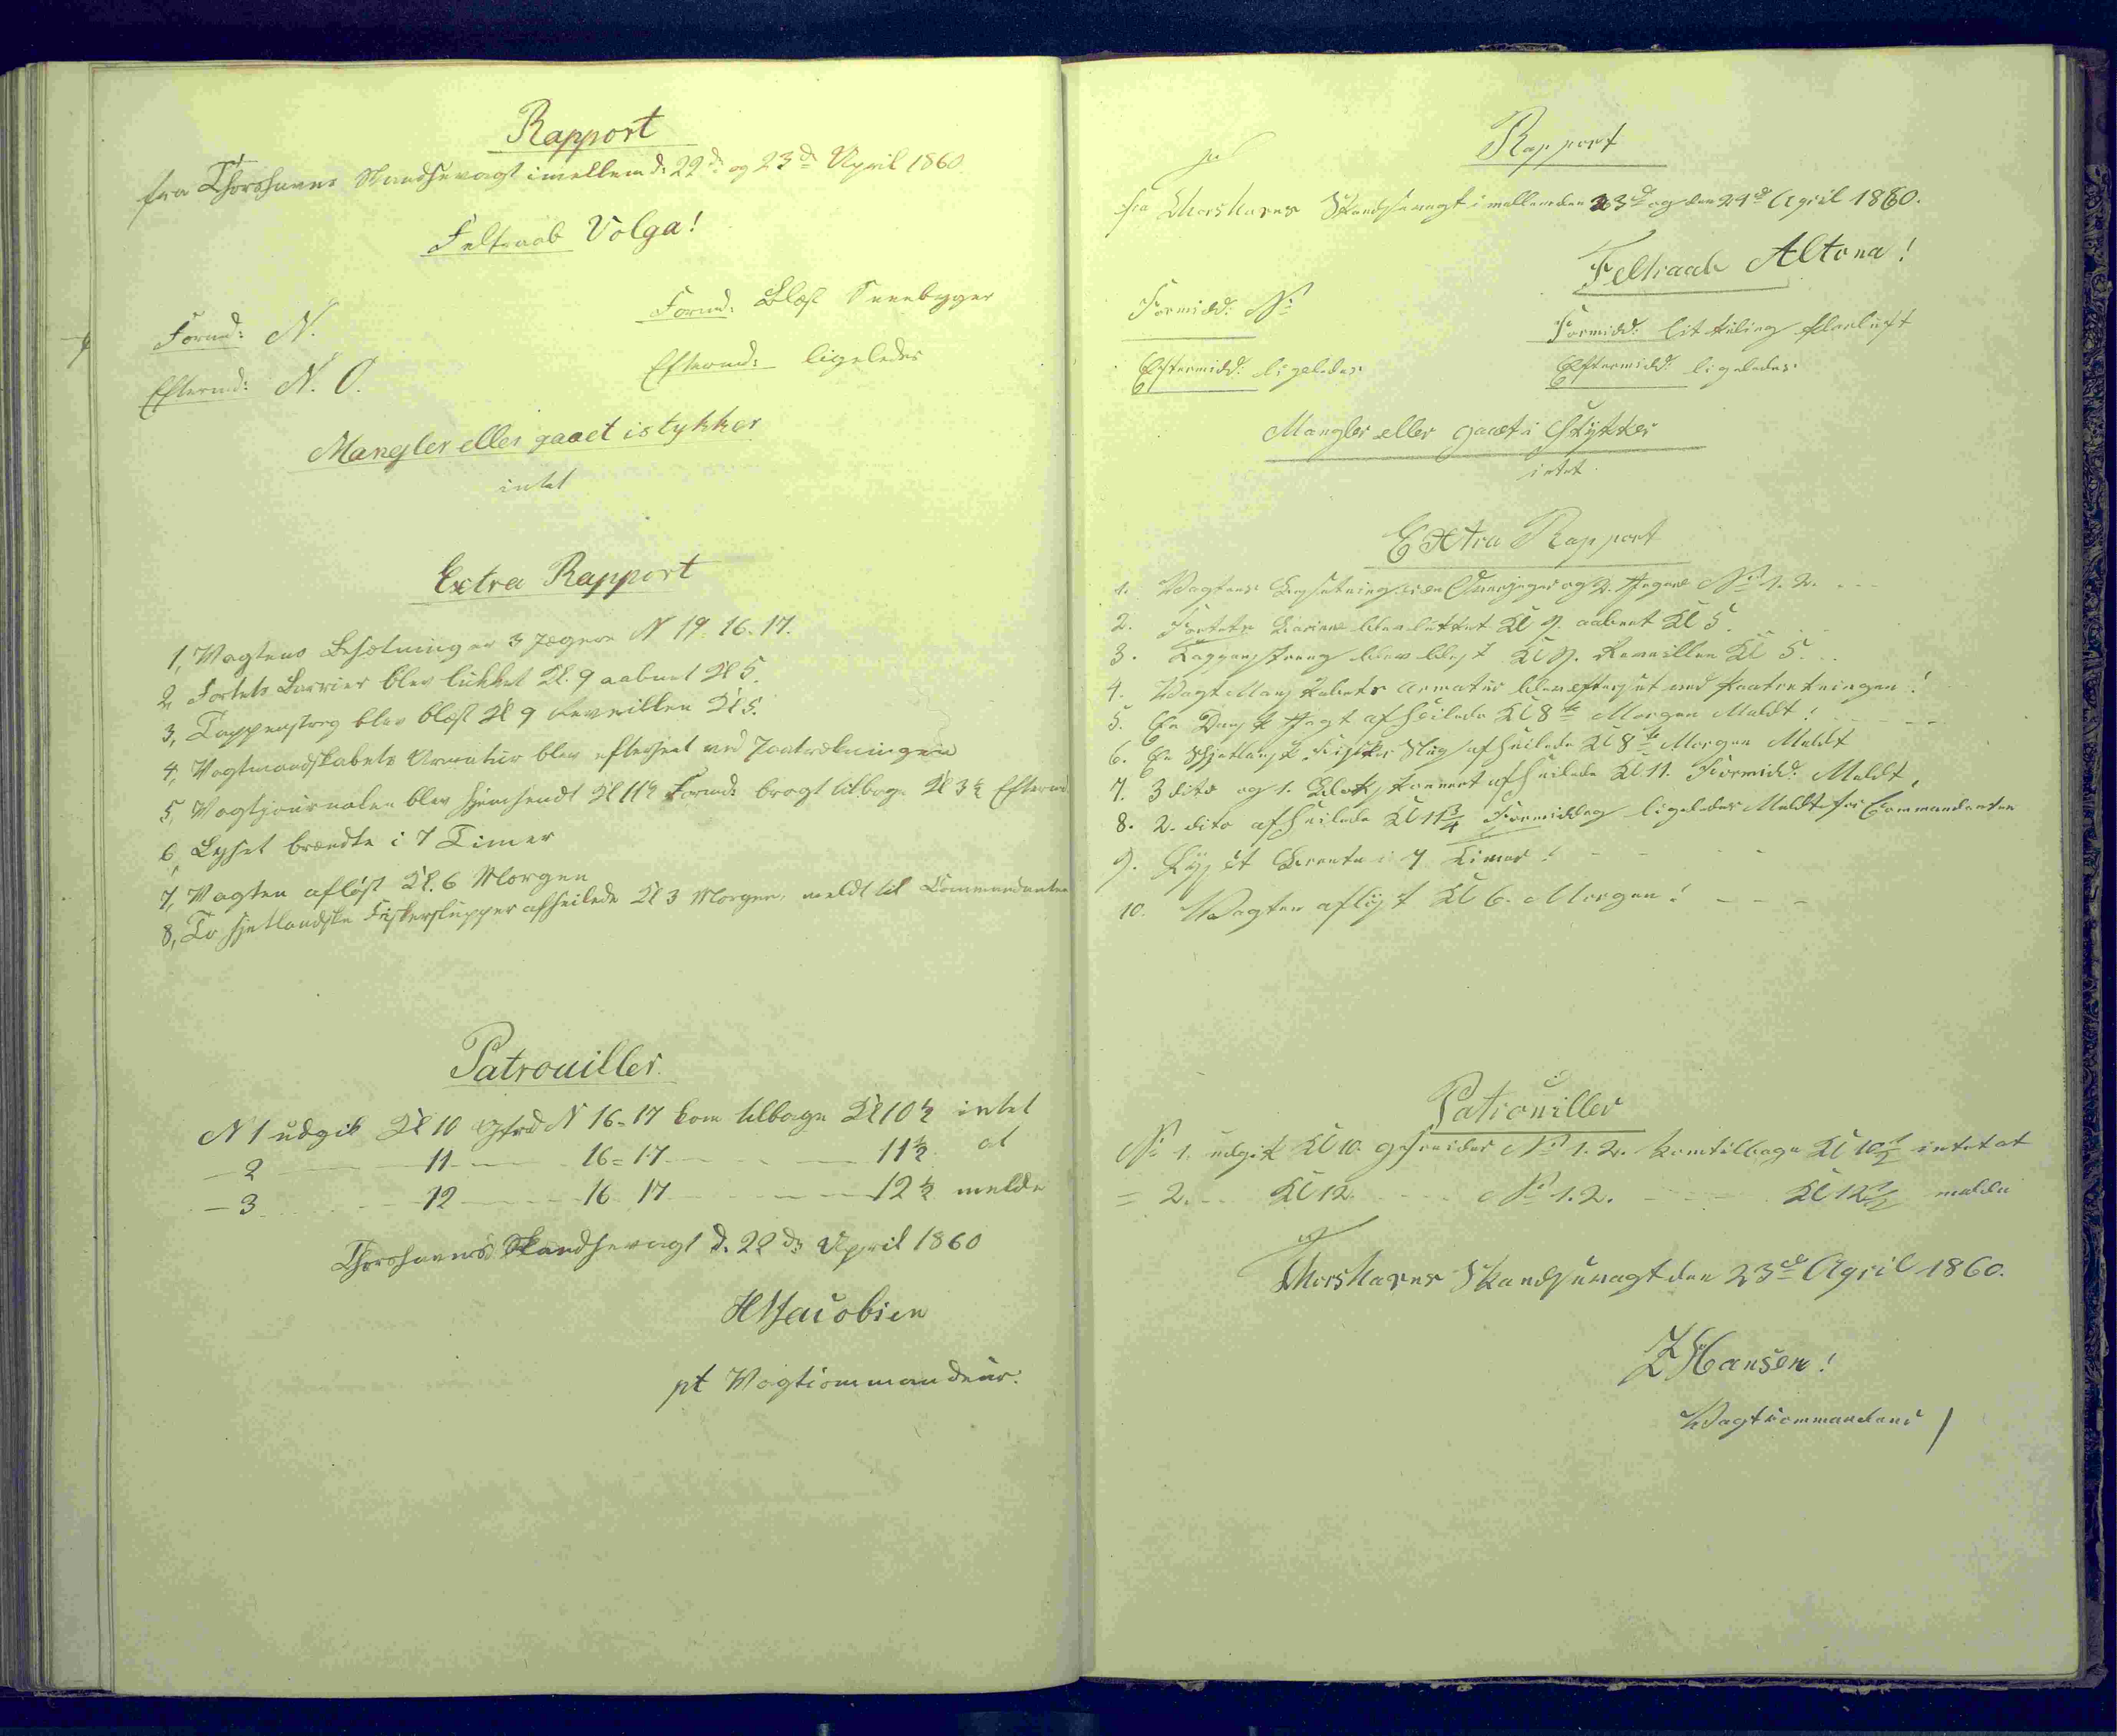 Rapport
fra Thorshavns Skandsevagt imellem d: 22d og 23d April 1860.
Feltraab Volga!
Formd: N.
Formd: Blæst Sneebyger
Eftermd: N. O.
Eftermd: ligeledes
Mangler eller gaaet istykker
intet
Extra Rapport
1, Vagtens Besætning er 3 Jægere N 19. 16. 17.
2, Fortets Barrier blev lukket Kl. 9 aabnet Kl 5.
3, Tappenstreg blev blæst Kl 9 Reveillen Kl 5.
4, Vagtmandskabets Armatur blev efterseet ved Paatrækningen
5, Vagtjournalen blev hjemsendt Kl 11½ Formd: bragt tilbage Kl 3½ Eftermd
6, Lyset brændte i 7 Timer
7, Vagten afløst Kl. 6 Morgen
8, To hjetlandske Fiskerslupper afseilede Kl 3 Morgen, meldt til Commandanten
Patrouiller.
N 1 udgik Kl 10 Gfrd N 16=17 kom tilbage Kl 10½ intet
— 2 — 11 — 16=17 — 11½ at
— 3 — 12 — 16 17 — 12½ melde
Thorshavns Skandsevagt d. 22d: April 1860
HJacobsen
pt Vagtcommandeur.
Rapport
fra Thorshavns Skandsevagt imellem den 23d og den 24d April 1860.
Feltraab Altona!
Formidd: N:
Formidd: lit kuling klarluft
Eftermidd: ligeledes
Eftermidd: ligeledes
Mangler eller gaaet i Stykker
intet
Extra Rapport
1. Vagtens Besætning er en Overjæger og 2. Jægere No 1. 2.
2. Fortets Bariere blev lukket Kl 9. aabnet Kl 5.
3. Tappenstreng blev blæst Kl 9. Reveillen Kl 5.
4. Vagt Manskabets Armatur blev efterset ved Paatretningen!
5. En Dansk Jagt afseilede Kl 8te Morgen Meldt!
6. En Schjetlansk Fisker Slup afseilede Kl 8te Morgen Meldt
7. 3 dito og 1. afseilede Kl 11. Formidd: Meldt,
8. 2. dito afseilede Kl 11¾ Formiddag ligeledes Meldt for Commandanten
9. Lyset Brente i 7 Timer!
10. Vagten afløst Kl 6. Morgen!
Patrouiller
No 1. udgik Kl 10. gefreider No 1. 2. kom tilbage Kl 10½ intet at
= 2. Kl 12. No 1. 2. Kl 12½ melde
Thorshavns Skandsevagt den 23d April 1860.
Z Hansen!
Vagtcommandeur